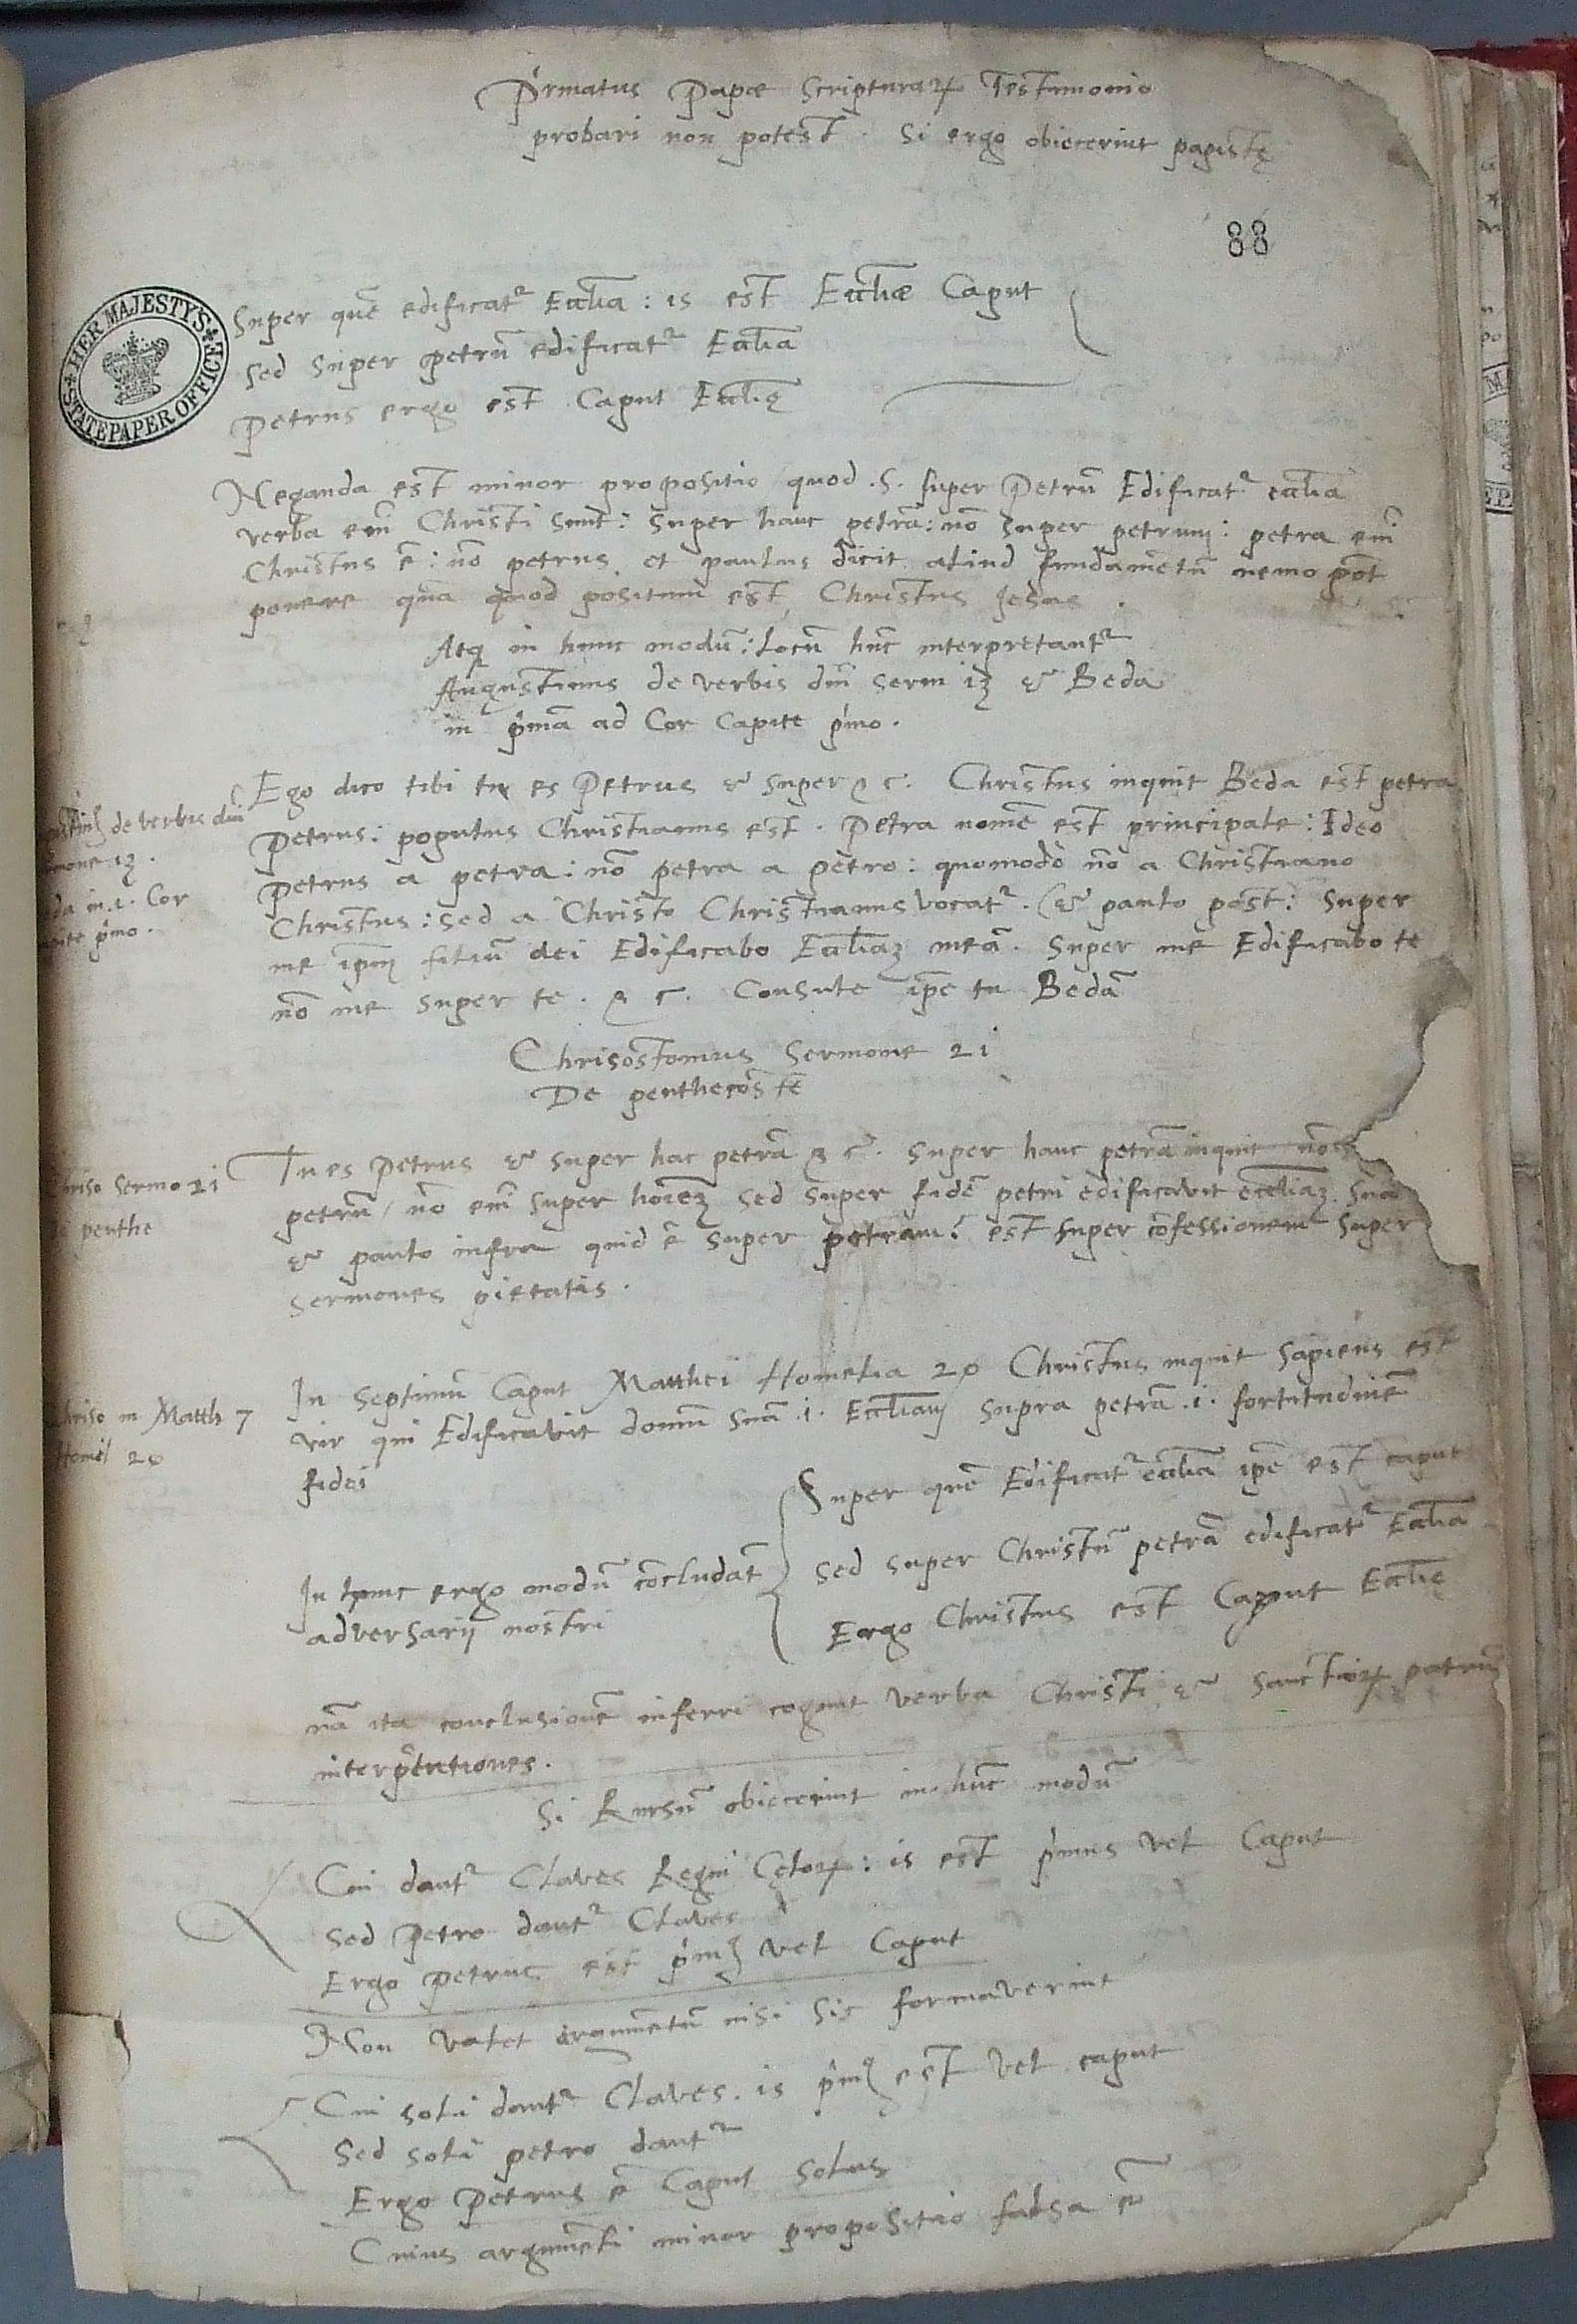 Prímatus Papæ Scripturaꝝ Testimonio
probari non potest. Si ergo obiecerint papistę
88
HER MAJESTY'S STATE PAPER OFFICE
Super quē edificatᷣ Ecclīa: is est Ecclīæ Caput
sed super petrū edificatᷣ Ecclīa
Petrus ergo est Caput Ecclīę
Neganda est minor propositio / quod .S. super Petrū Edificatᷣ ecclīa
verba em̄ Christi sunt: super hanc petrā: nō super petrum: petra em̄
Christus ē: nō petrus. et paulus dicit aliud fundamētū nemo pōt
ponere quā quod positum est, Christus Jesus.
Atqꝫ in hunc modū: Locū hūc interpretantᷣ
Augustinus de verbis dnī serm 13 & Beda
in p̍mā ad Cor Capite p̍mo.
de verbis dnī
13.
in .1. Cor
p̍mo.
Ego dico tibi tu es Petrus & super &c. Christus inquit Beda est petra
Petrus: populus Christianus est. Petra nomē est principale: Ideo
Petrus a petra: nō petra a petro: quomodo nō a Christiano
Christus: sed a Christo Christianus vocatᷣ. (& paulo post: Super
me ip̄m filiū dei Edificabo Ecclīaꝫ meā. Super me Edificabo te
nō me super te. &c. Consule ip̄e tu Bedā
Chrisostomus Sermone 21
De penthecoste
Sermo 21
penthe
Tu es Petrus & super hāc petrā &c. Super hanc petrā inquit nō
petrū / nō em̄ super hoīeꝫ sed super fidē petri edificavit eccliāꝫ suā
& paulo infra quid ē super petram? est super cōfessionem super
sermones pietatis.
Chriso in Matth 7
Homel 20
In septimū Caput Matthei Homelia 20 Christus inquit sapiens est
vir qui Edificavit domū suā .i. Ecclīam supra petrā .i. fortitudinē
fidei
In hunc ergo modū cōcludāt
adversarij nostri
Super quē Edificatᷣ ecclīa ip̄e est caput
Sed super Christū petrā edificatᷣ Ecclīa
Ergo Christus est Caput Ecclīę
nā ita conclusionē inferri cogunt verba Christi & Sanctoꝝ patrū
interp̄tationes.
Si Rursū obiecerint in hūc modū
Cui dantᷣ Claves Regni Cęloꝝ: is est p̍mus vel Caput
Sed Petro dantᷣ Claves
Ergo Petrus est p̍mꝰ vel Caput
Non valet argumētū nisi sic formaverint
Cui soli dantᷣ Claves. is p̍mꝰ est vel caput
Sed soli petro dantᷣ
Ergo Petrus ē Caput solus
Cuius argumēti minor propositio falsa ē